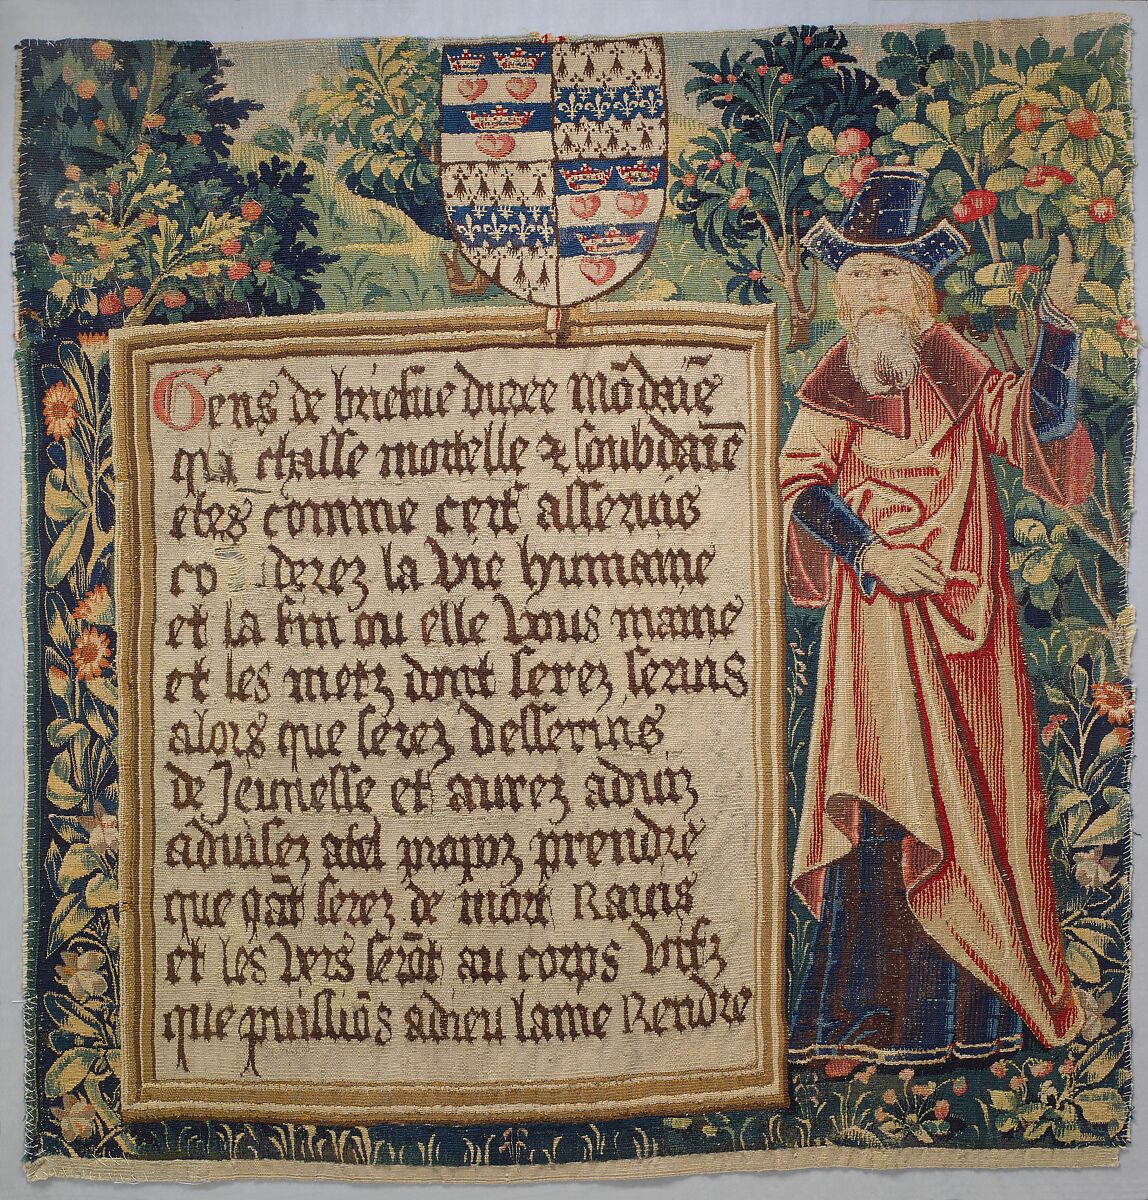 Gens de briefue duree mōdaīe
qui chasse mortelle & soubdaīe
etes comme cerf asseruis
co derez la vie humaine
et la fin ou elle vous maine
et les metz dont serez seruis
alors que serez desseruis
de Jeunesse et aurez aduiz
aduisez a tel propoz prendre
que qāt serez de mort Rauis
et les vers serōt au corps vifz
que puissiōs a dieu lame Rendre